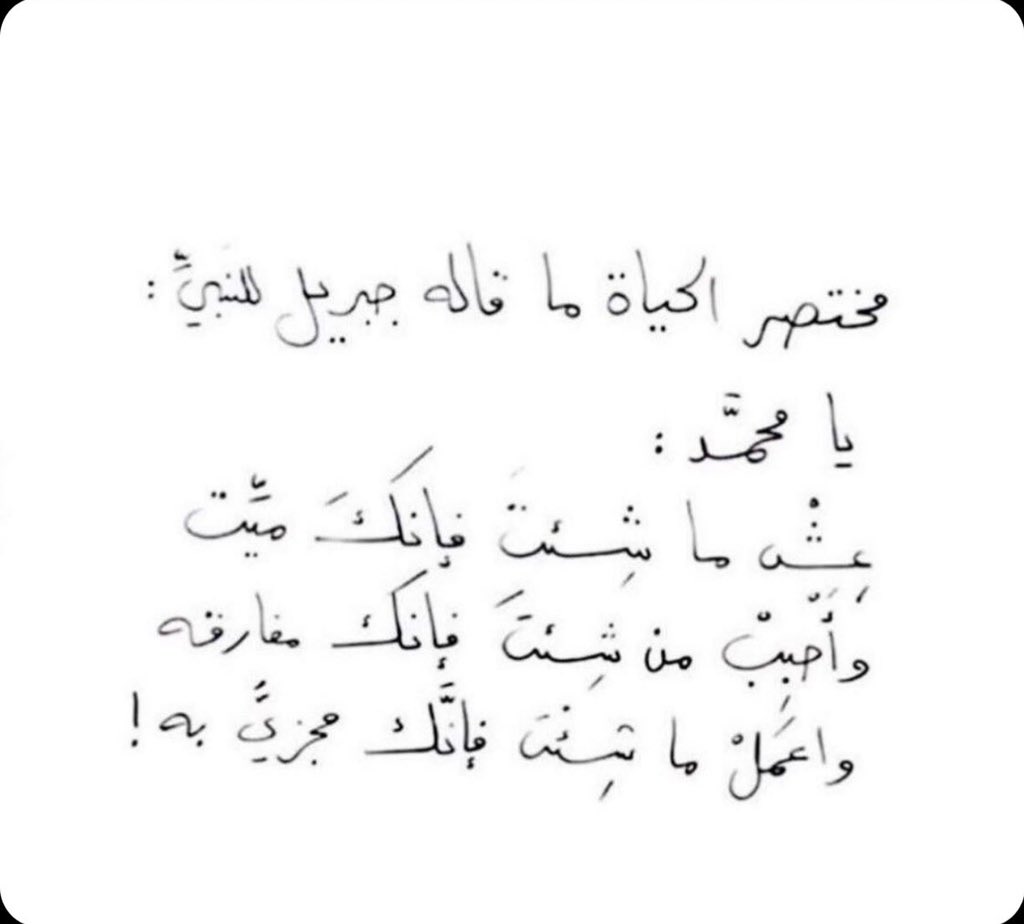 مختصر الحياة ما قاله جبريل للنبيِّ :
يا محمَّد :
عِشْ ما شِئتَ فإنكَ ميِّت
وأَحْبِبْ من شِئتَ فإنكَ مفارقه
واعمَلْ ما شِئتَ فإنَّك مجزيٌّ به !